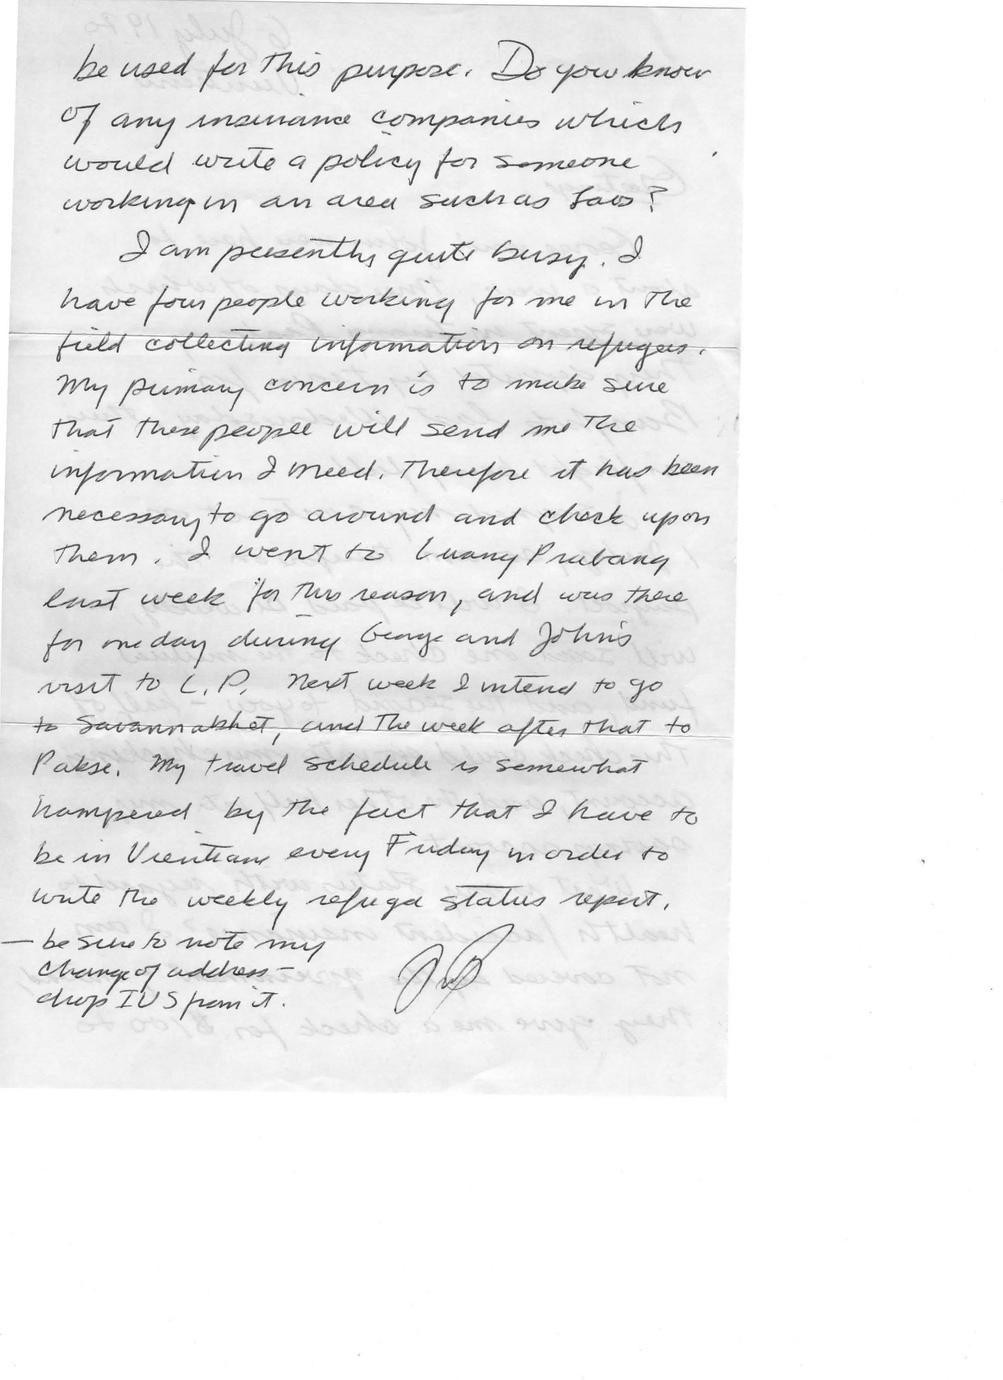 be used for this purpose. Do you know
of any insurance companies which
would write a policy for someone
working in an area such as Laos?
I am presently quite busy. I
have four people working for me in the
field collecting information on refugees.
My primary concern is to make sure
that these people will send me the
information I need. Therefore it has been
necessary to go around and check upon
them. I went to Luang Prabang
last week for this reason, and was there
for one day during George and John's
visit to L.P. Next week I intend to go
to Savannakhet, and the week after that to
Pakse. My travel schedule is somewhat
hampered by the fact that I have to
be in Vientiane every Friday in order to
write the weekly refugee status report.
— be sure to note my
change of address –
drop IVS from it.